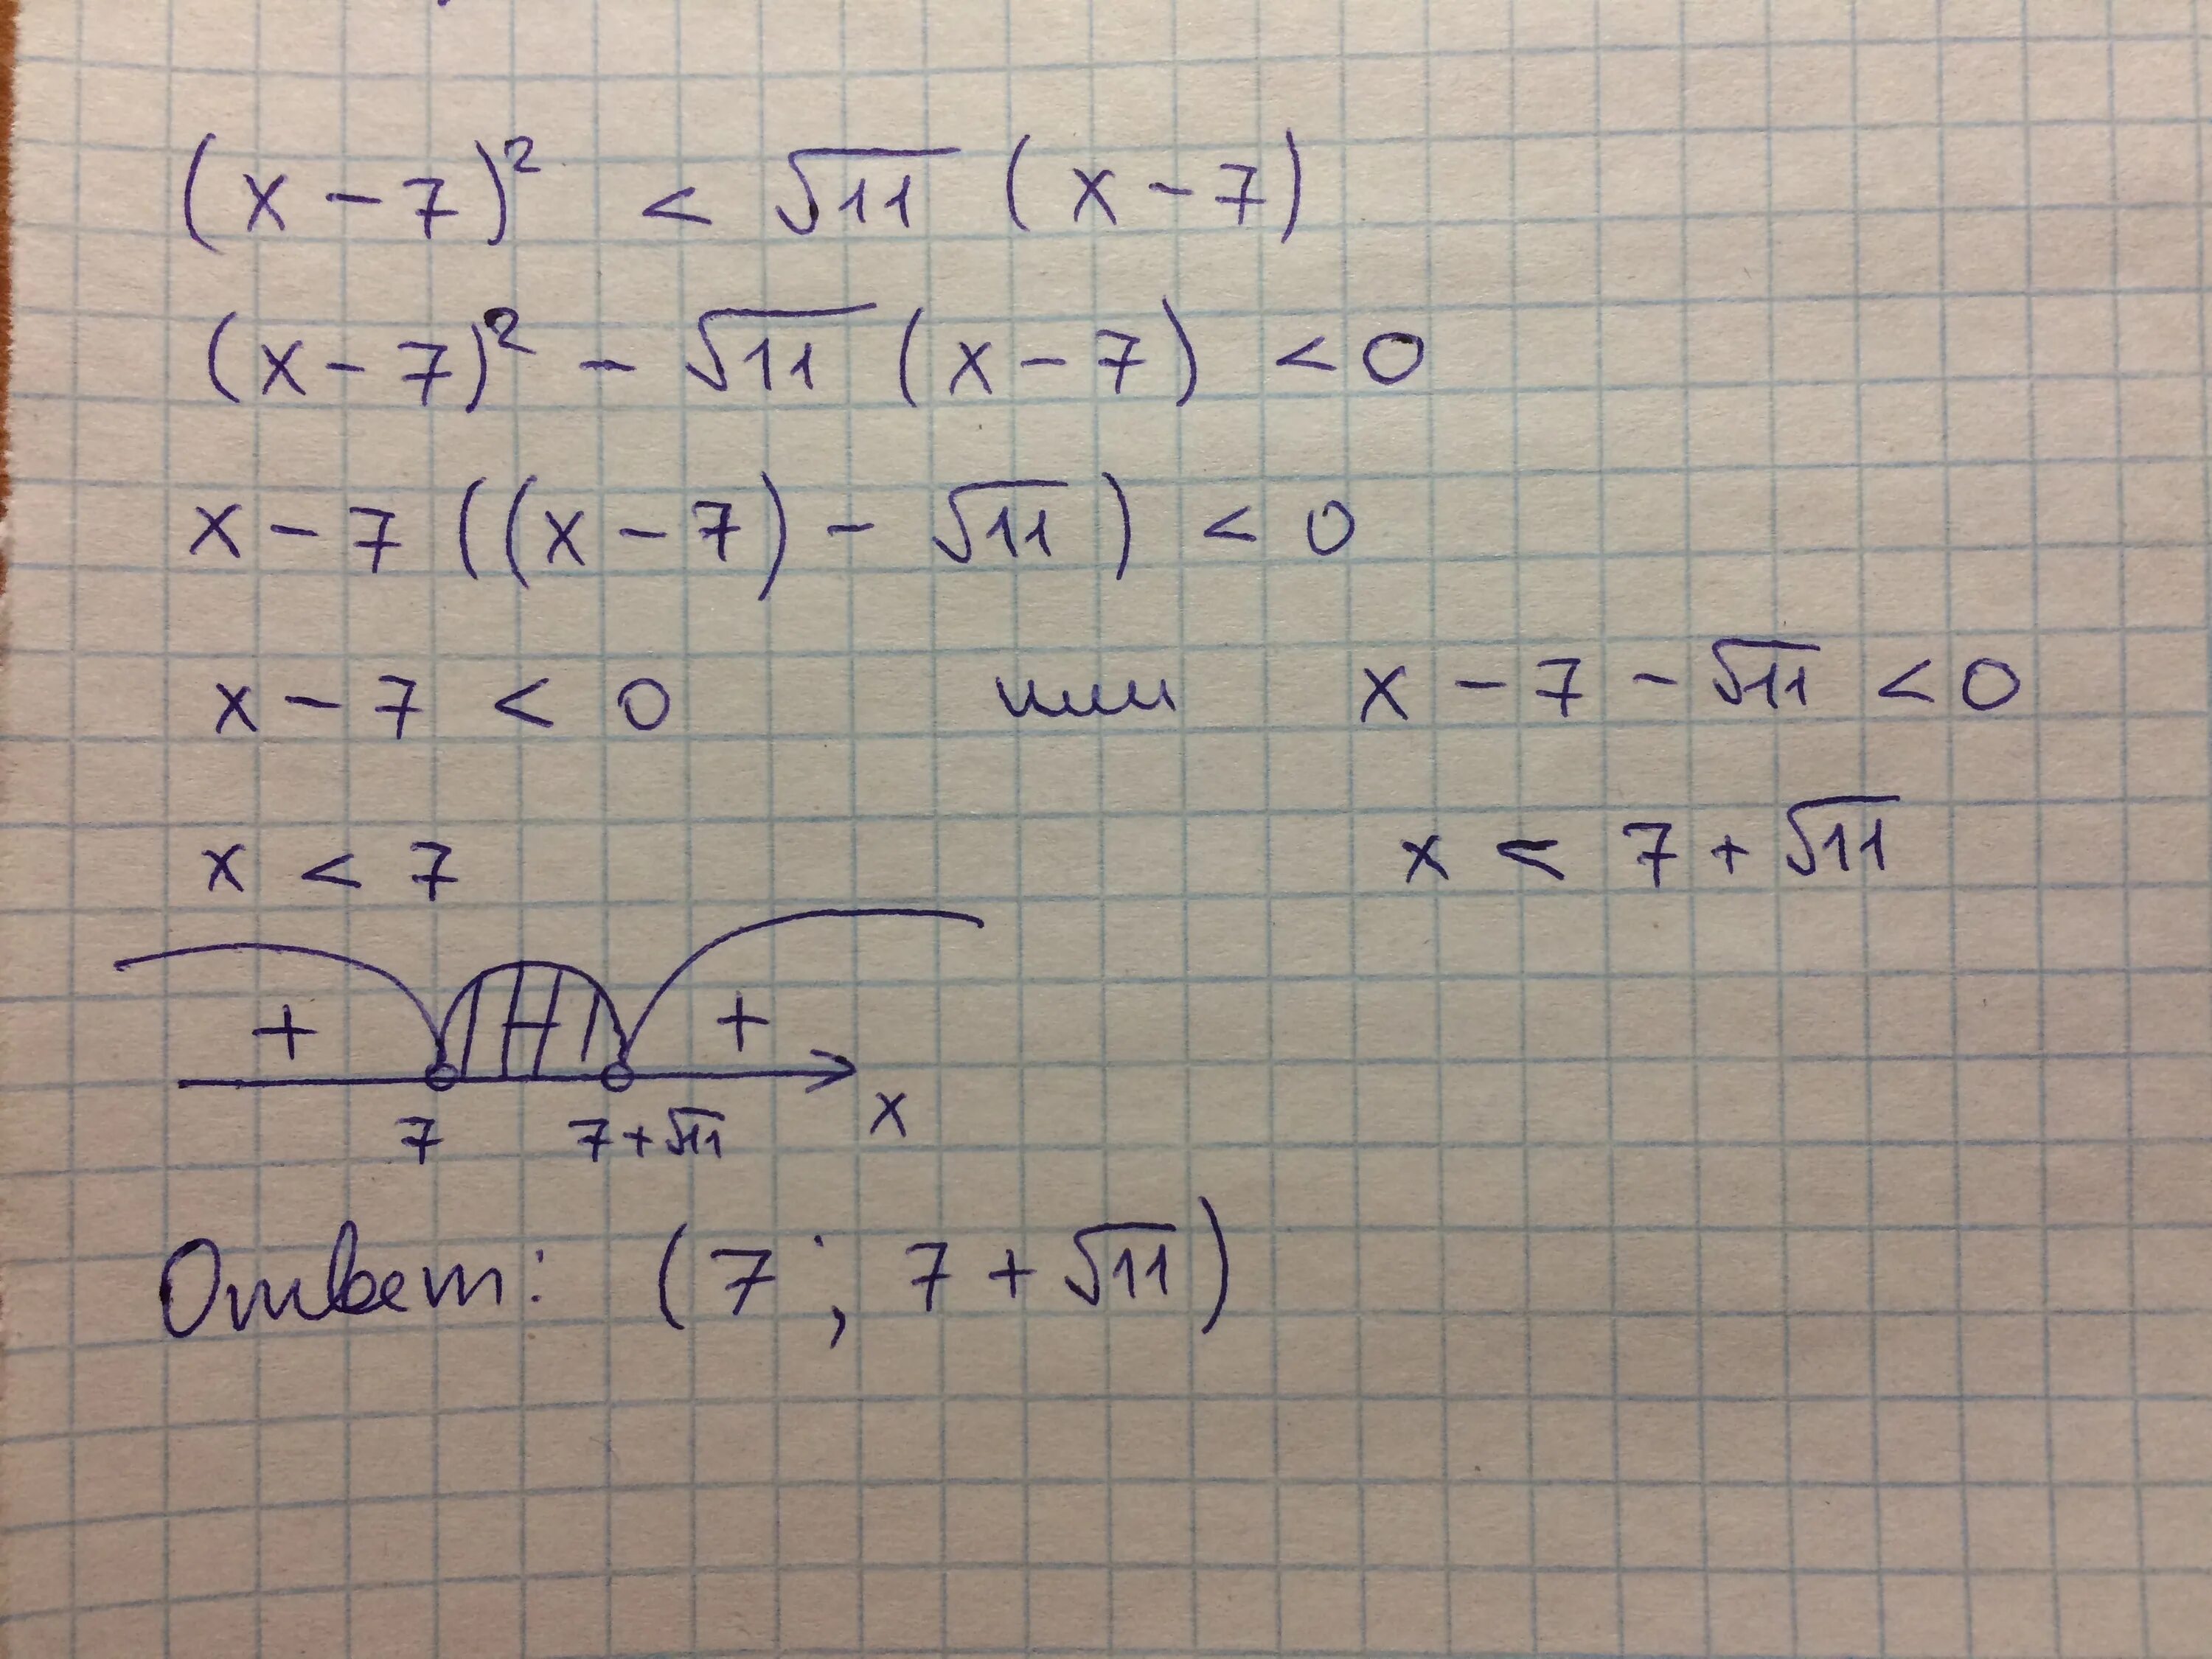 (x - 7)² < √11 (x - 7)
(x - 7)² - √11 (x - 7) < 0
x - 7 ((x - 7) - √11) < 0
x - 7 < 0 или x - 7 - √11 < 0
x < 7 x < 7 + √11
+ - +
7 7+√11 x
Ответ: (7 ; 7 + √11)